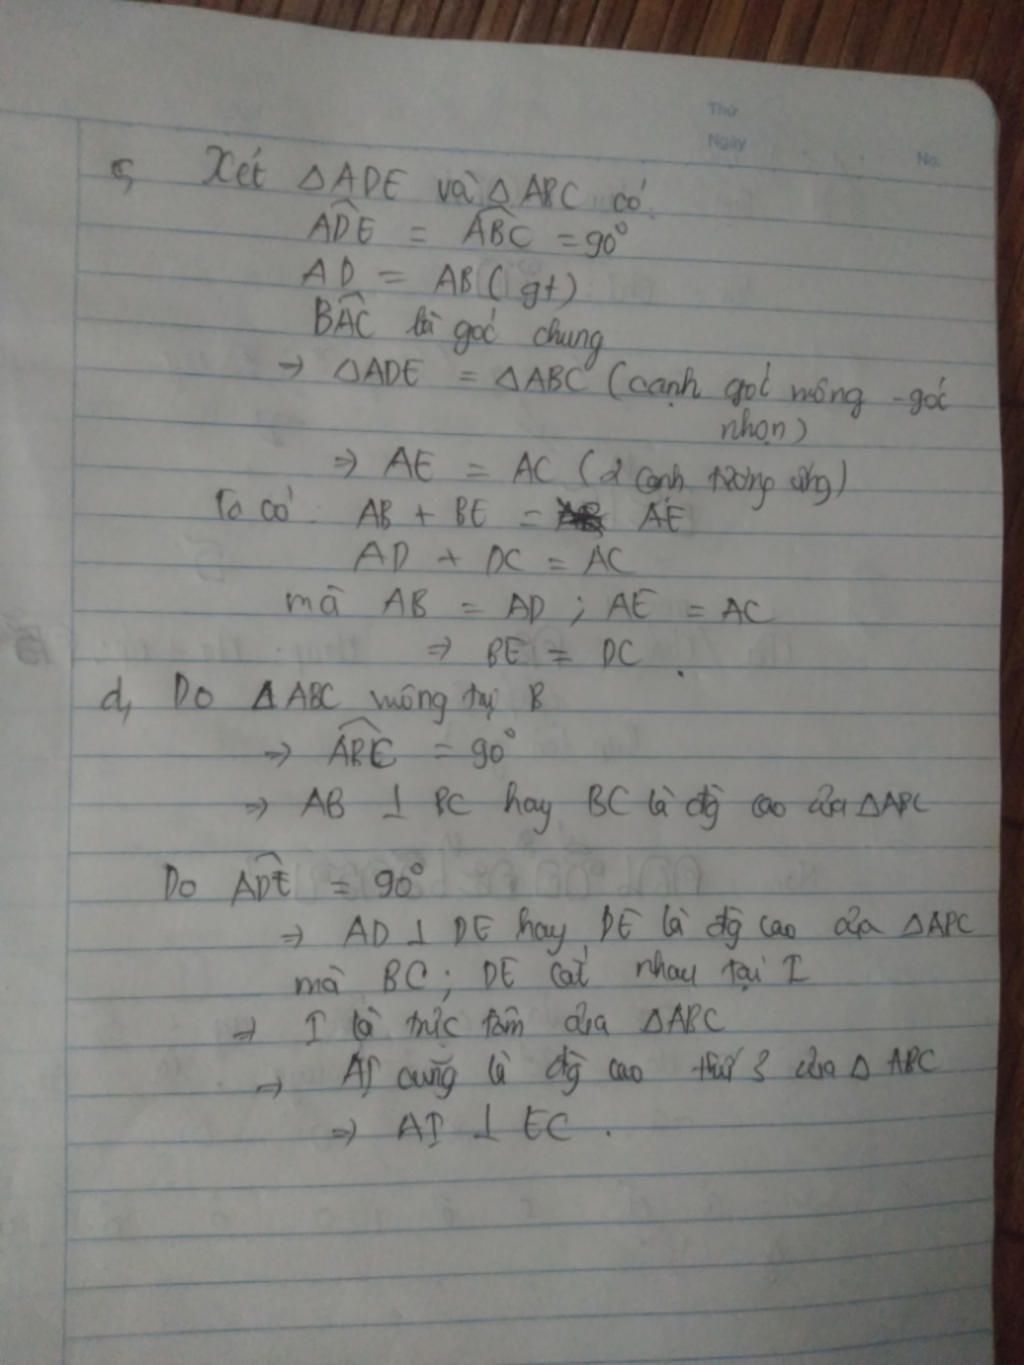 Thứ
Ngày
No.
c, Xét △ADE và △ABC có
ADE = ABC = 90°
AD = AB (gt)
BAC là góc chung
→ △ADE = △ABC (cạnh góc vuông - góc
nhọn)
⇒ AE = AC (2 cạnh tương ứng)
Ta có: AB + BE = AE
AD + DC = AC
mà AB = AD ; AE = AC
⇒ BE = DC.
d, Do △ABC vuông tại B
⇒ ABC = 90°
⇒ AB ⊥ BC hay BC là đg cao của △ABC
Do ADE = 90°
⇒ AD ⊥ DE hay DE là đg cao của △ABC
mà BC ; DE cắt nhau tại I
⇒ I là trực tâm của △ABC
⇒ AI cũng là đg cao thứ 3 của △ ABC
⇒ AI ⊥ EC .